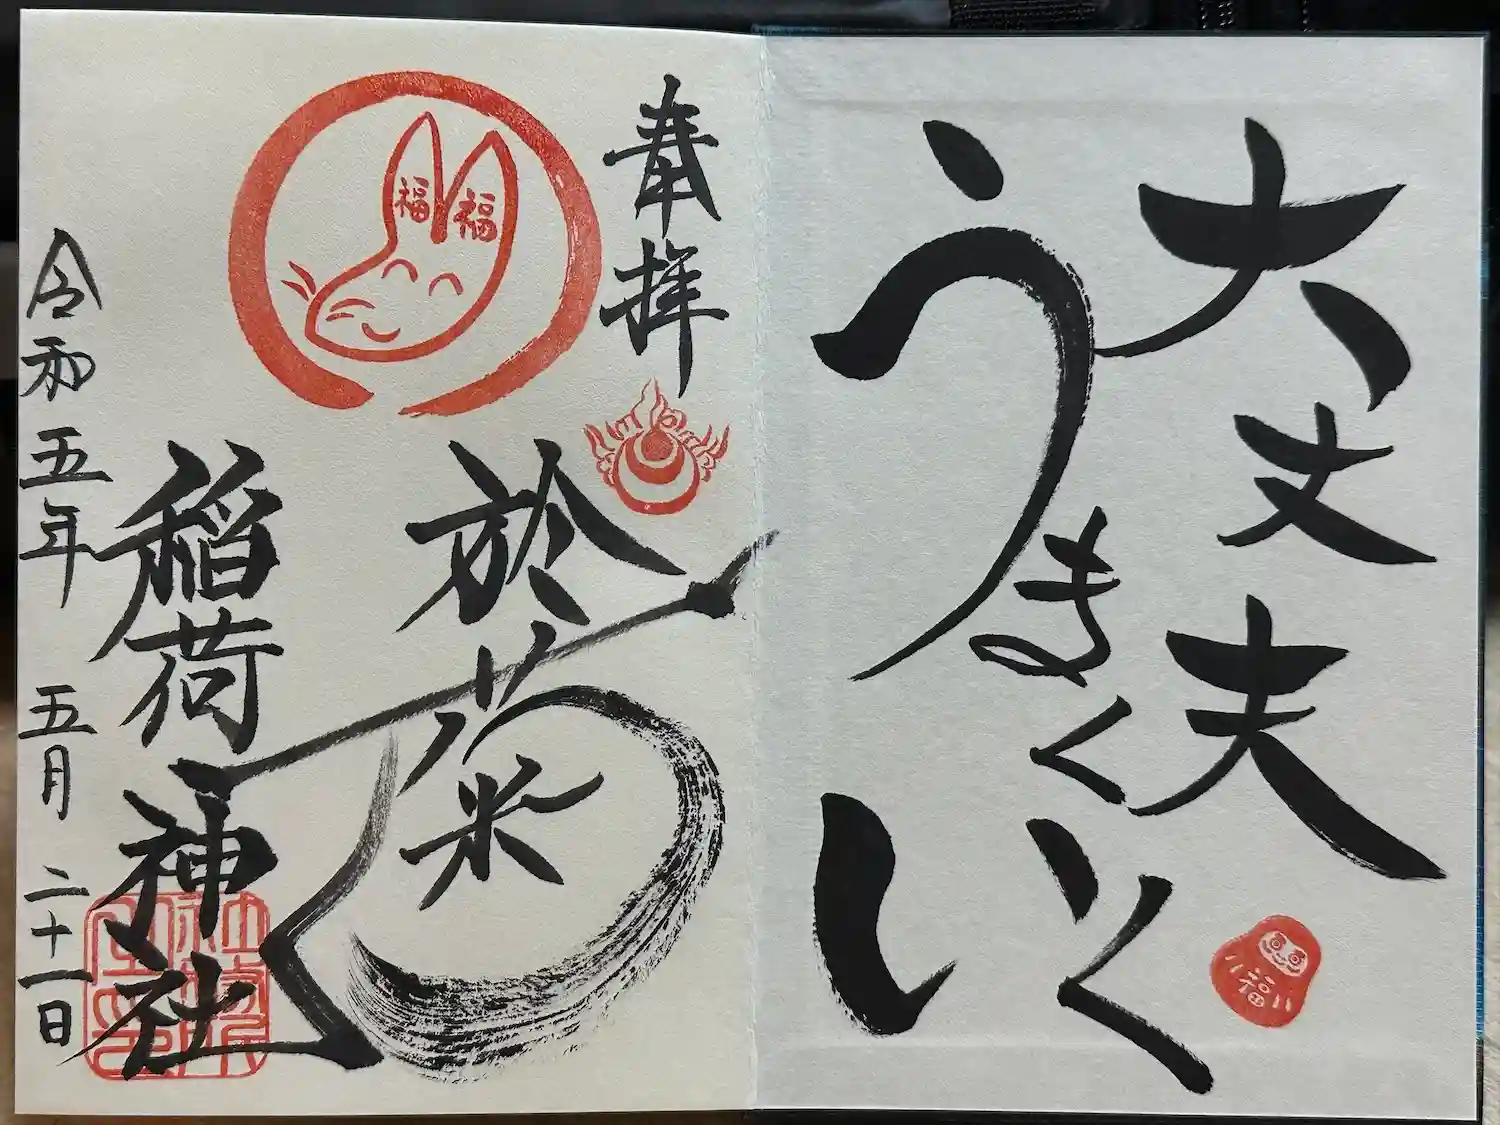 大丈夫
うまくいく
福
奉拝
福福
於菊
稲荷神社
令和五年五月二十一日